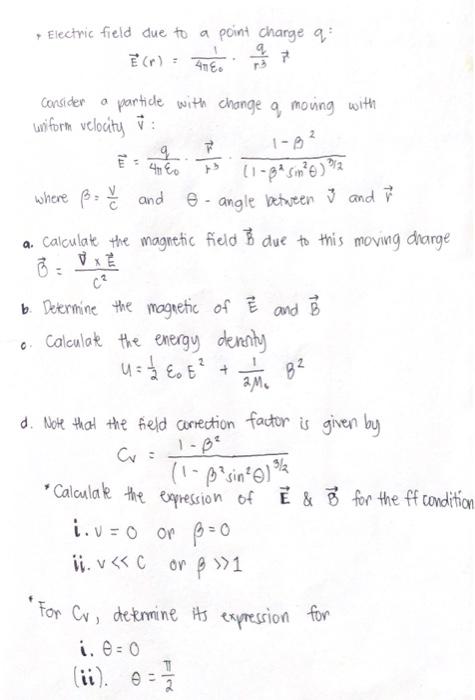 , Electric field due to a point charge q:
E⃗(r) = 1/4πε₀ · q/r³ r⃗
Consider a particle with change q moving with
uniform velocity v⃗ :
E⃗ = q/4πε₀ · r⃗/r³ · 1-β²/(1-β²sin²θ)^3/2
where β = v/c and θ - angle between v⃗ and r⃗
a. Calculate the magnetic field B⃗ due to this moving charge
B⃗ = v⃗ × E⃗/c²
b. Determine the magnetic of E⃗ and B⃗
c. Calculate the energy density
u = 1/2 ε₀E² + 1/2μ₀ B²
d. Note that the field correction factor is given by
Cv = 1-β²/(1-β²sin²θ)^3/2
*Calculate the expression of E⃗ & B⃗ for the ff condition
i. v = 0 or β = 0
ii. v << c or β >> 1
*For Cv, determine its expression for
i. θ = 0
(ii). θ = π/2